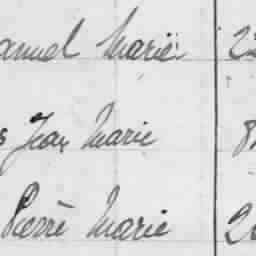 anuel Marie 22
s Jean Marie 8
Pierre Marie 2